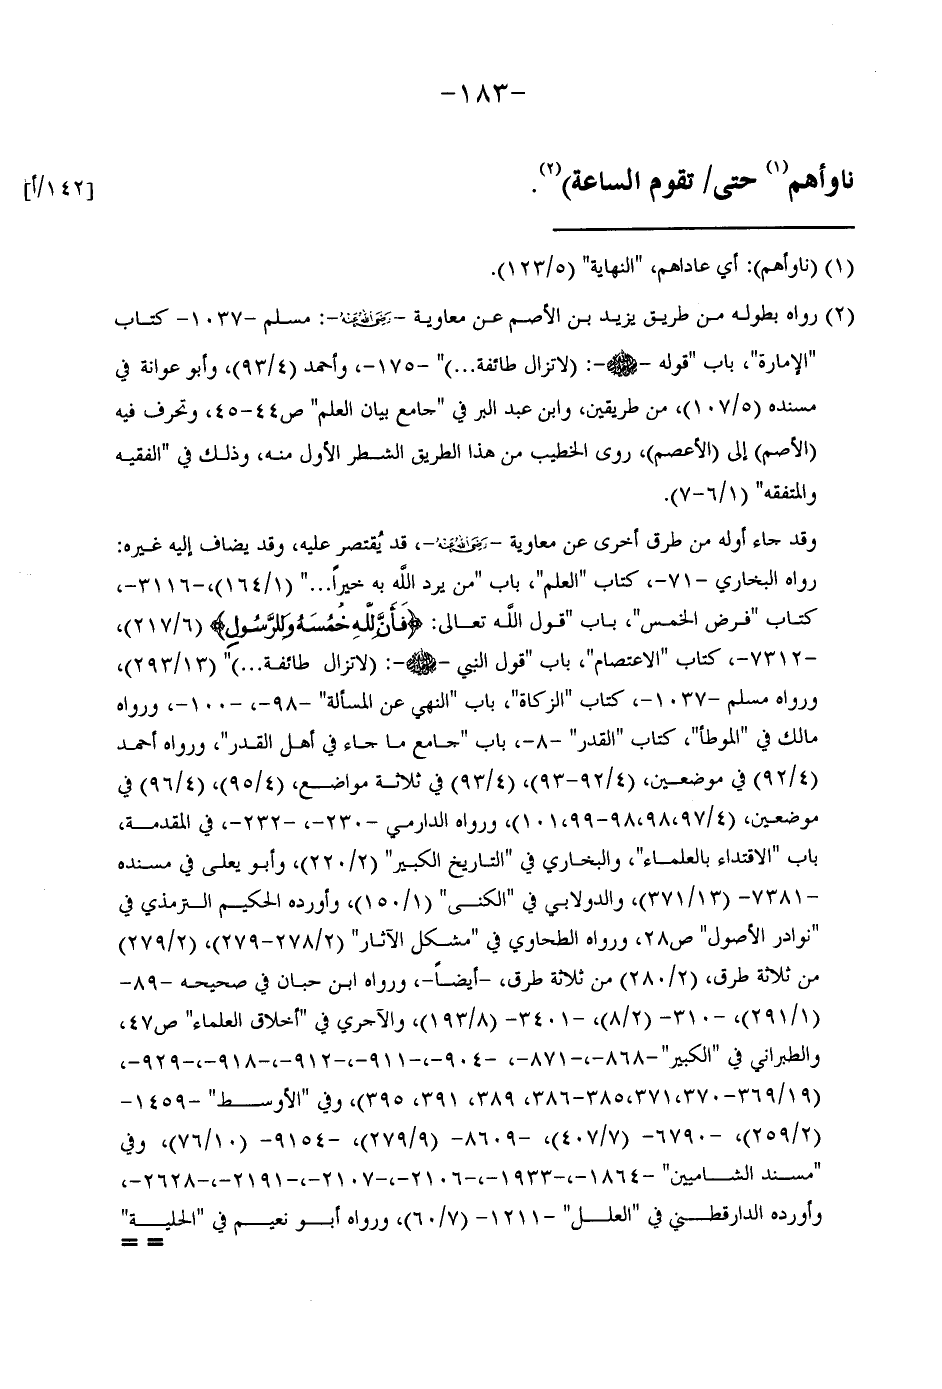 -١٨٣-
ناوأهم(١) حتى/ تقوم الساعة)(٢). [١٤٢/أ]
(١) (ناوأهم): أي عاداهم، "النهاية" (١٢٣/٥).
(٢) رواه بطوله من طريق يزيد بن الأصم عن معاوية -رضي الله عنه-: مسلم -١٠٣٧- كتاب
"الإمارة"، باب "قوله -ﷺ-: (لاتزال طائفة...)" -١٧٥-، وأحمد (٩٣/٤)، وأبو عوانة في
مسنده (١٠٧/٥)، من طريقين، وابن عبد البر في "جامع بيان العلم" ص٤٤-٤٥، وتحرف فيه
(الأصم) إلى (الأعصم)، روى الخطيب من هذا الطريق الشطر الأول منه، وذلك في "الفقيه
والمتفقه" (٦/١-٧).
وقد جاء أوله من طرق أخرى عن معاوية -رضي الله عنه-، قد يُقتصر عليه، وقد يضاف إليه غيره:
رواه البخاري -٧١-، كتاب "العلم"، باب "من يرد الله به خيراً..." (١٦٤/١)،-٣١١٦-،
كتاب "فرض الخمس"، باب "قول الله تعالى: ﴿فَأَنَّ لِلَّهِ خُمُسَهُ وَلِلرَّسُولِ﴾ (٢١٧/٦)،
-٧٣١٢-، كتاب "الاعتصام"، باب "قول النبي -ﷺ-: (لاتزال طائفة...)" (٢٩٣/١٣)،
ورواه مسلم -١٠٣٧-، كتاب "الزكاة"، باب "النهي عن المسألة" -٩٨-، -١٠٠-، ورواه
مالك في "الموطأ"، كتاب "القدر" -٨-، باب "جامع ما جاء في أهل القدر"، ورواه أحمد
(٩٢/٤) في موضعين، (٩٢/٤-٩٣)، (٩٣/٤) في ثلاثة مواضع، (٩٥/٤)، (٩٦/٤) في
موضعين، (٩٧/٤، ٩٨، ٩٨-٩٩، ١٠١)، ورواه الدارمي -٢٣٠-، -٢٣٢-، في المقدمة،
باب "الاقتداء بالعلماء"، والبخاري في "التاريخ الكبير" (٢٢٠/٢)، وأبو يعلى في مسنده
-٧٣٨١- (٣٧١/١٣)، والدولابي في "الكنى" (١٥٠/١)، وأورده الحكيم الترمذي في
"نوادر الأصول" ص٢٨، ورواه الطحاوي في "مشكل الآثار" (٢٧٨/٢-٢٧٩)، (٢٧٩/٢)
من ثلاثة طرق، (٢٨٠/٢) من ثلاثة طرق، -أيضاً-، ورواه ابن حبان في صحيحه -٨٩-
(٢٩١/١)، -٣١٠- (٨/٢)، -٣٤٠١- (١٩٣/٨)، والآجري في "أخلاق العلماء" ص٤٧،
والطبراني في "الكبير" -٨٦٨-،-٨٧١-، -٩٠٤-،-٩١١-،-٩١٢-،-٩١٨-،-٩٢٩-،
(٣٦٩/١٩-٣٧٠، ٣٧١، ٣٨٥-٣٨٦، ٣٨٩، ٣٩١، ٣٩٥)، وفي "الأوسط" -١٤٥٩-
(٢٥٩/٢)، -٦٧٩٠- (٤٠٧/٧)، -٨٦٠٩- (٢٧٩/٩)، -٩١٥٤- (٧٦/١٠)، وفي
"مسند الشاميين" -١٨٦٤-،-١٩٣٣-،-٢١٠٦-،-٢١٠٧-،-٢١٩١-،-٢٦٢٨-،
وأورده الدارقطني في "العلل" -١٢١١- (٦٠/٧)، ورواه أبو نعيم في "الحلية"
= =